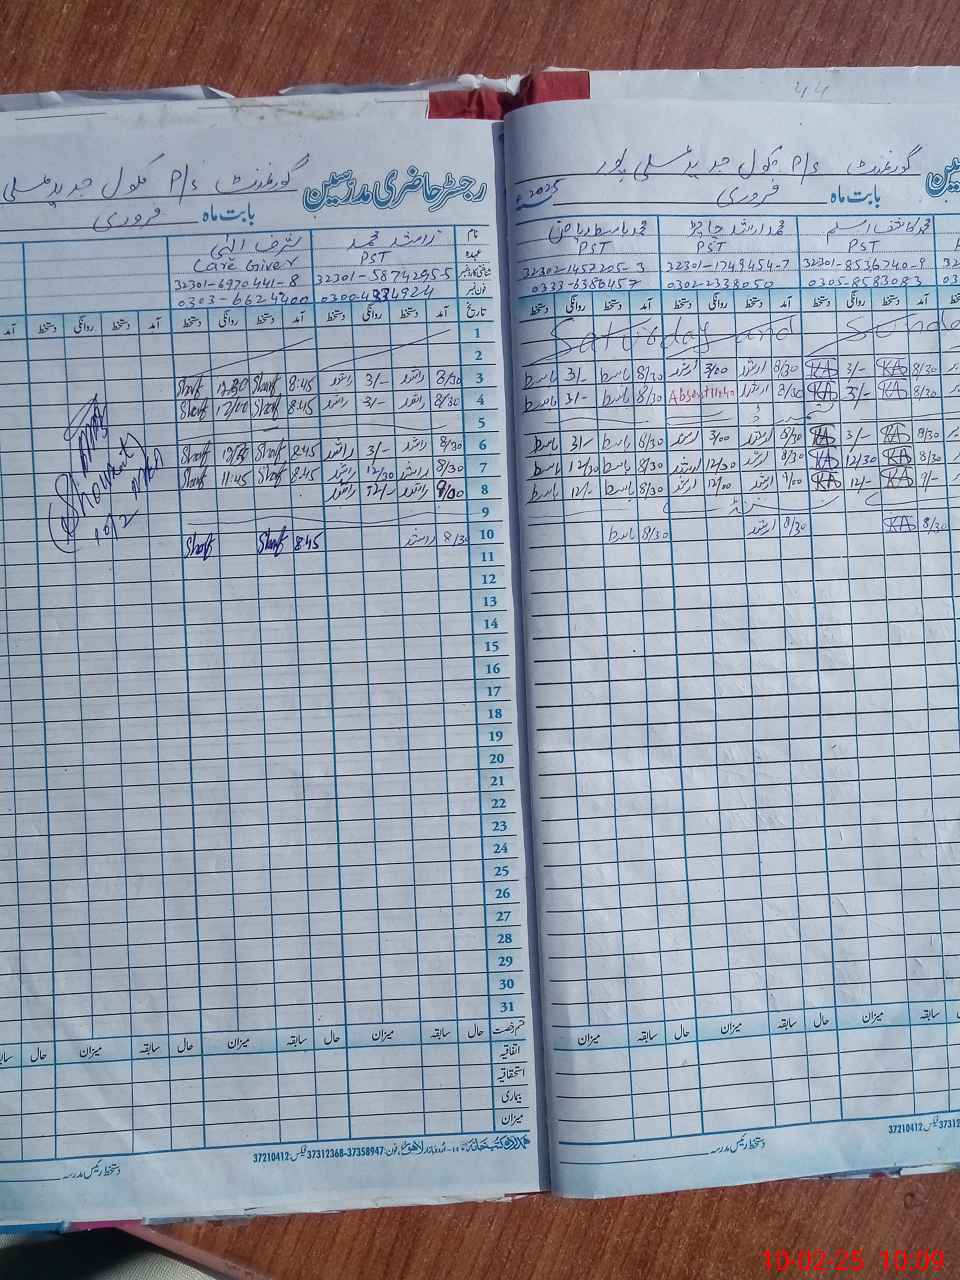 44
گورنمنٹ P/s سکول جدید بستی پور
فروری 2025ء
محمد کاشف اسلم محمد ارشد محمد باسط ریاض
PST PST PST
32301-8536740-9 32301-1749454-7 32302-1457205-3
0305-8583083 0302-2338050 0333-6386457
آمد دستخط روانگی دستخط آمد دستخط روانگی دستخط آمد دستخط روانگی دستخط
Saturday and Sunday
8/30 KA 3/- KA 8/30 ارشد 3/00 ارشد 8/30 باسط 3/- باسط
8/30 KA 3/- KA 8/30 ارشد Absent 11:40 8/30 باسط 3/- باسط
8/30 KA 3/- KA 8/30 ارشد 3/00 ارشد 8/30 باسط 3/- باسط
8/30 KA 12/30 KA 8/30 ارشد 12/30 ارشد 8/30 باسط 12/30 باسط
9/- KA 12/- KA 9/00 ارشد 12/00 ارشد 8/30 باسط 12/- باسط
8/30 KA 8/30 ارشد 8/30 باسط
سابقہ میزان حال سابقہ میزان حال سابقہ میزان
37210412
دستخط رئیس مدرسہ
رجسٹر حاضری مدرسین گورنمنٹ P/s سکول جدید بستی
بابت ماہ فروری
نام راشد محمد شرف الٰہی
عہدہ PST Care Giver
شناختی کارڈ نمبر 32301-5874295-5 32301-6970441-8
فون نمبر 0300-4934924 0303-6624400
تاریخ آمد دستخط روانگی دستخط آمد دستخط روانگی دستخط آمد دستخط روانگی دستخط آمد
1
2
3 8/30 راشد 3/- راشد 8:45 Sharf Sharf
4 8/30 راشد 3/- راشد 8:45 Sharf Sharf
5
6 8/30 راشد 3/- راشد 8:45 Sharf Sharf
7 8/30 راشد 12/30 راشد 8:45 Sharf 11:45 Sharf
8 9/00 راشد 12/- راشد
9
10 8/30 راشد 8:45 Sharf Sharf
10/2
11
12
13
14
15
16
17
18
19
20
21
22
23
24
25
26
27
28
29
30
31
قسم رخصت حال سابقہ میزان حال سابقہ میزان حال سابقہ میزان حال
اتفاقیہ
استحقاقیہ
بیماری
میزان
اُردو بازار لاہور فون: 37358947-37312368 فیکس: 37210412
دستخط رئیس مدرسہ
10-02-25 10:09